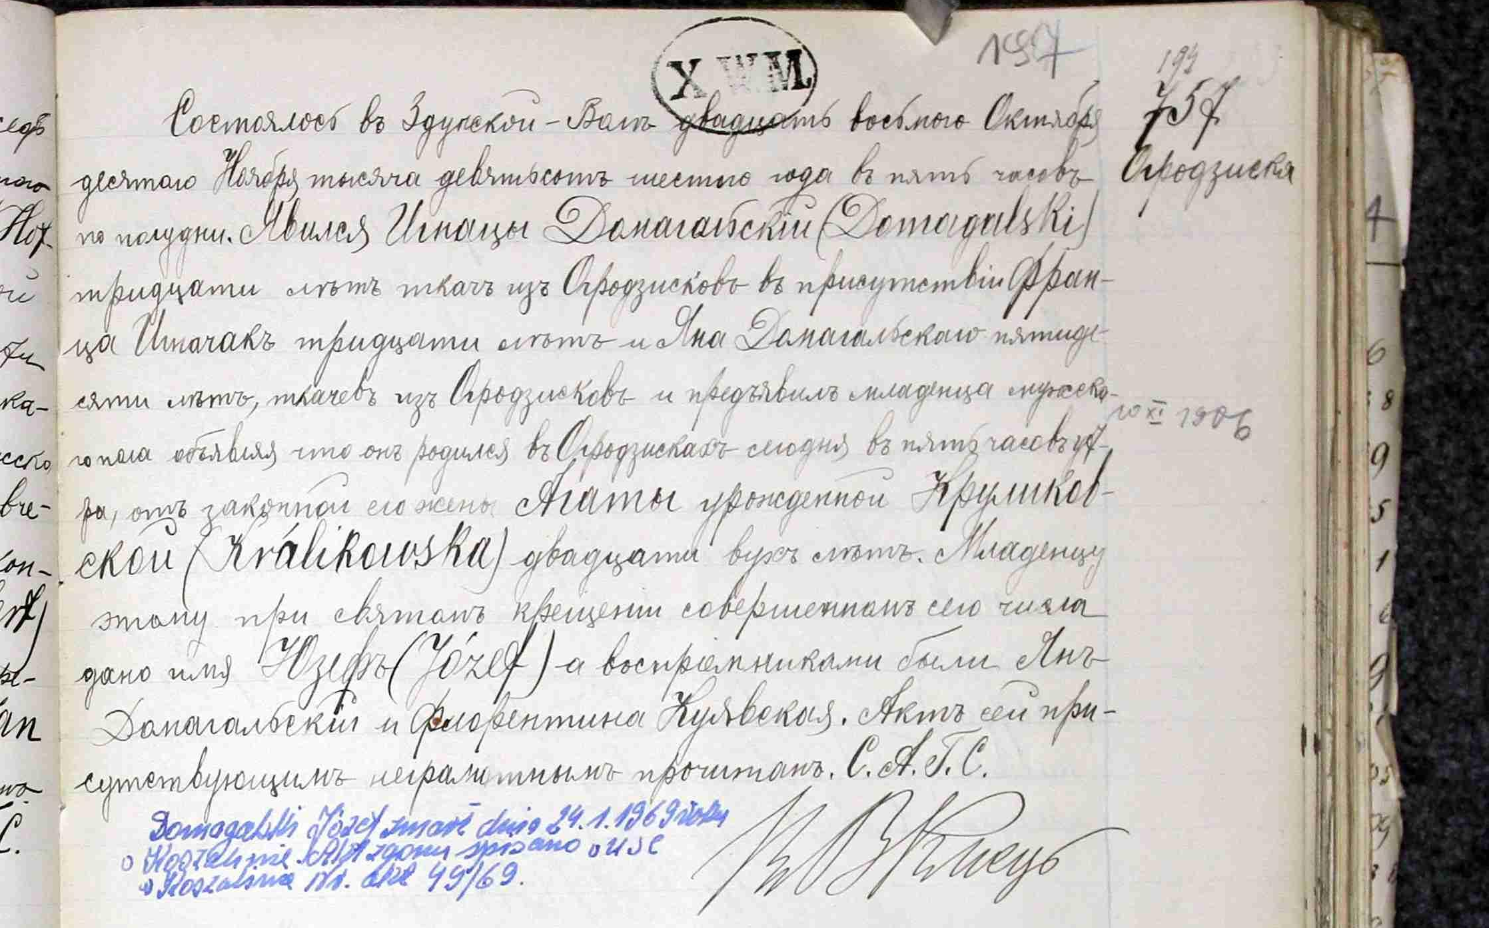 X.W.M.
197
194
757
Огродзиска
Состоялось въ Здунской-Воли двадцать восьмого Октября
десятаго Ноября тысяча девятьсотъ шестого года въ пять часовъ
по полудни. Явился Игнацы Домагальскiй (Domagalski)
тридцати лѣтъ ткачъ изъ Огродзисковъ въ присутствiи Фран-
ца Игначакъ тридцати лѣтъ и Яна Домагальскаго пятиде-
сяти лѣтъ, ткачевъ изъ Огродзисковъ и предъявилъ младенца мужеска-
10 XI 1906
го пола объявляя что онъ родился въ Огродзискахъ сегодня въ пять часовъ ут-
ра, отъ законной его жены Агаты урожденной Круликов-
ской (Królikowska) двадцати двухъ лѣтъ. Младенцу
этому при святомъ крещенiи совершенномъ сего числа
дано имя Юзефъ (Józef) а воспрiемниками были Янъ
Домагальскiй и Флорентина Куявская. Актъ сей при-
сутствующимъ неграмотнымъ прочитанъ. С. А. Г. С.
Domagalski Józef zmarł dnia 24.1.1969 roku
Koszalinie Akt zgonu spisano w USC
w Koszalinie Nr. akt 49/69.